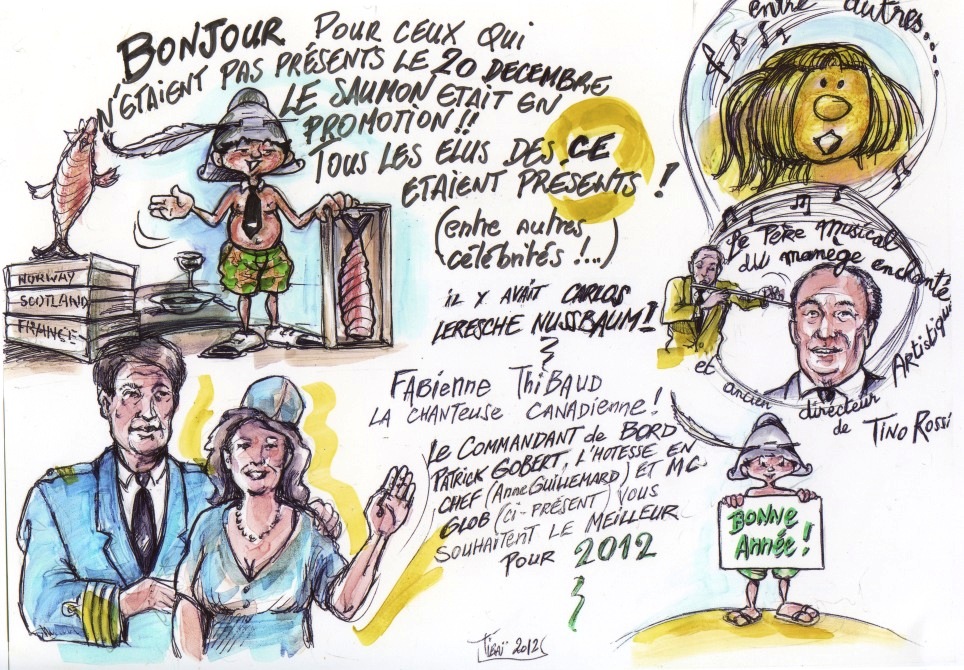 BONJOUR POUR CEUX QUI
N'ETAIENT PAS PRÉSENTS LE 20 DECEMBRE
LE SAUMON ETAIT EN
PROMOTION!!
TOUS LES ELUS DES CE
ETAIENT PRESENTS!
(entre autres
célébrités!...)
IL Y AVAIT CARLOS
LERESCHE NUSSBAUM!!
entre autres...
Le Père Musical
du manege enchanté
et ancien directeur
Artistique
de TINO ROSSI
NORWAY
SCOTLAND
FRANCE
FABIENNE THIBAUD
LA CHANTEUSE CANADIENNE!
Le COMMANDANT de BORD
PATRICK GOBERT, L'HOTESSE EN
CHEF (Anne GUILLEMARD) ET MC
GLOB (ci-PRÉSENT) VOUS
SOUHAITENT LE MEILLEUR
POUR 2012
BONNE
ANNÉE!
2012